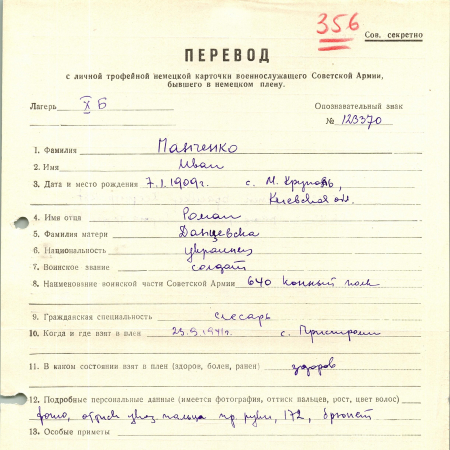 356
Сов. секретно
ПЕРЕВОД
с личной трофейной немецкой карточки военнослужащего Советской Армии,
бывшего в немецком плену.
Лагерь X Б Опознавательный знак
№ 123370
1. Фамилия Панченко
2. Имя Иван
3. Дата и место рождения 7.1.1909г. с. М. Круполь,
Киевская обл.
4. Имя отца Роман
5. Фамилия матери Данцевска
6. Национальность украинец
7. Воинское звание солдат
8. Наименование воинской части Советской Армии 640 конный полк
9. Гражданская специальность слесарь
10. Когда и где взят в плен 25.9.1941г. с. Пристроми
11. В каком состоянии взят в плен (здоров, болен, ранен) здоров
12. Подробные персональные данные (имеется фотография, оттиск пальцев, рост, цвет волос)
фото, оттиск указ. пальца пр. руки, 172, брюнет
13. Особые приметы